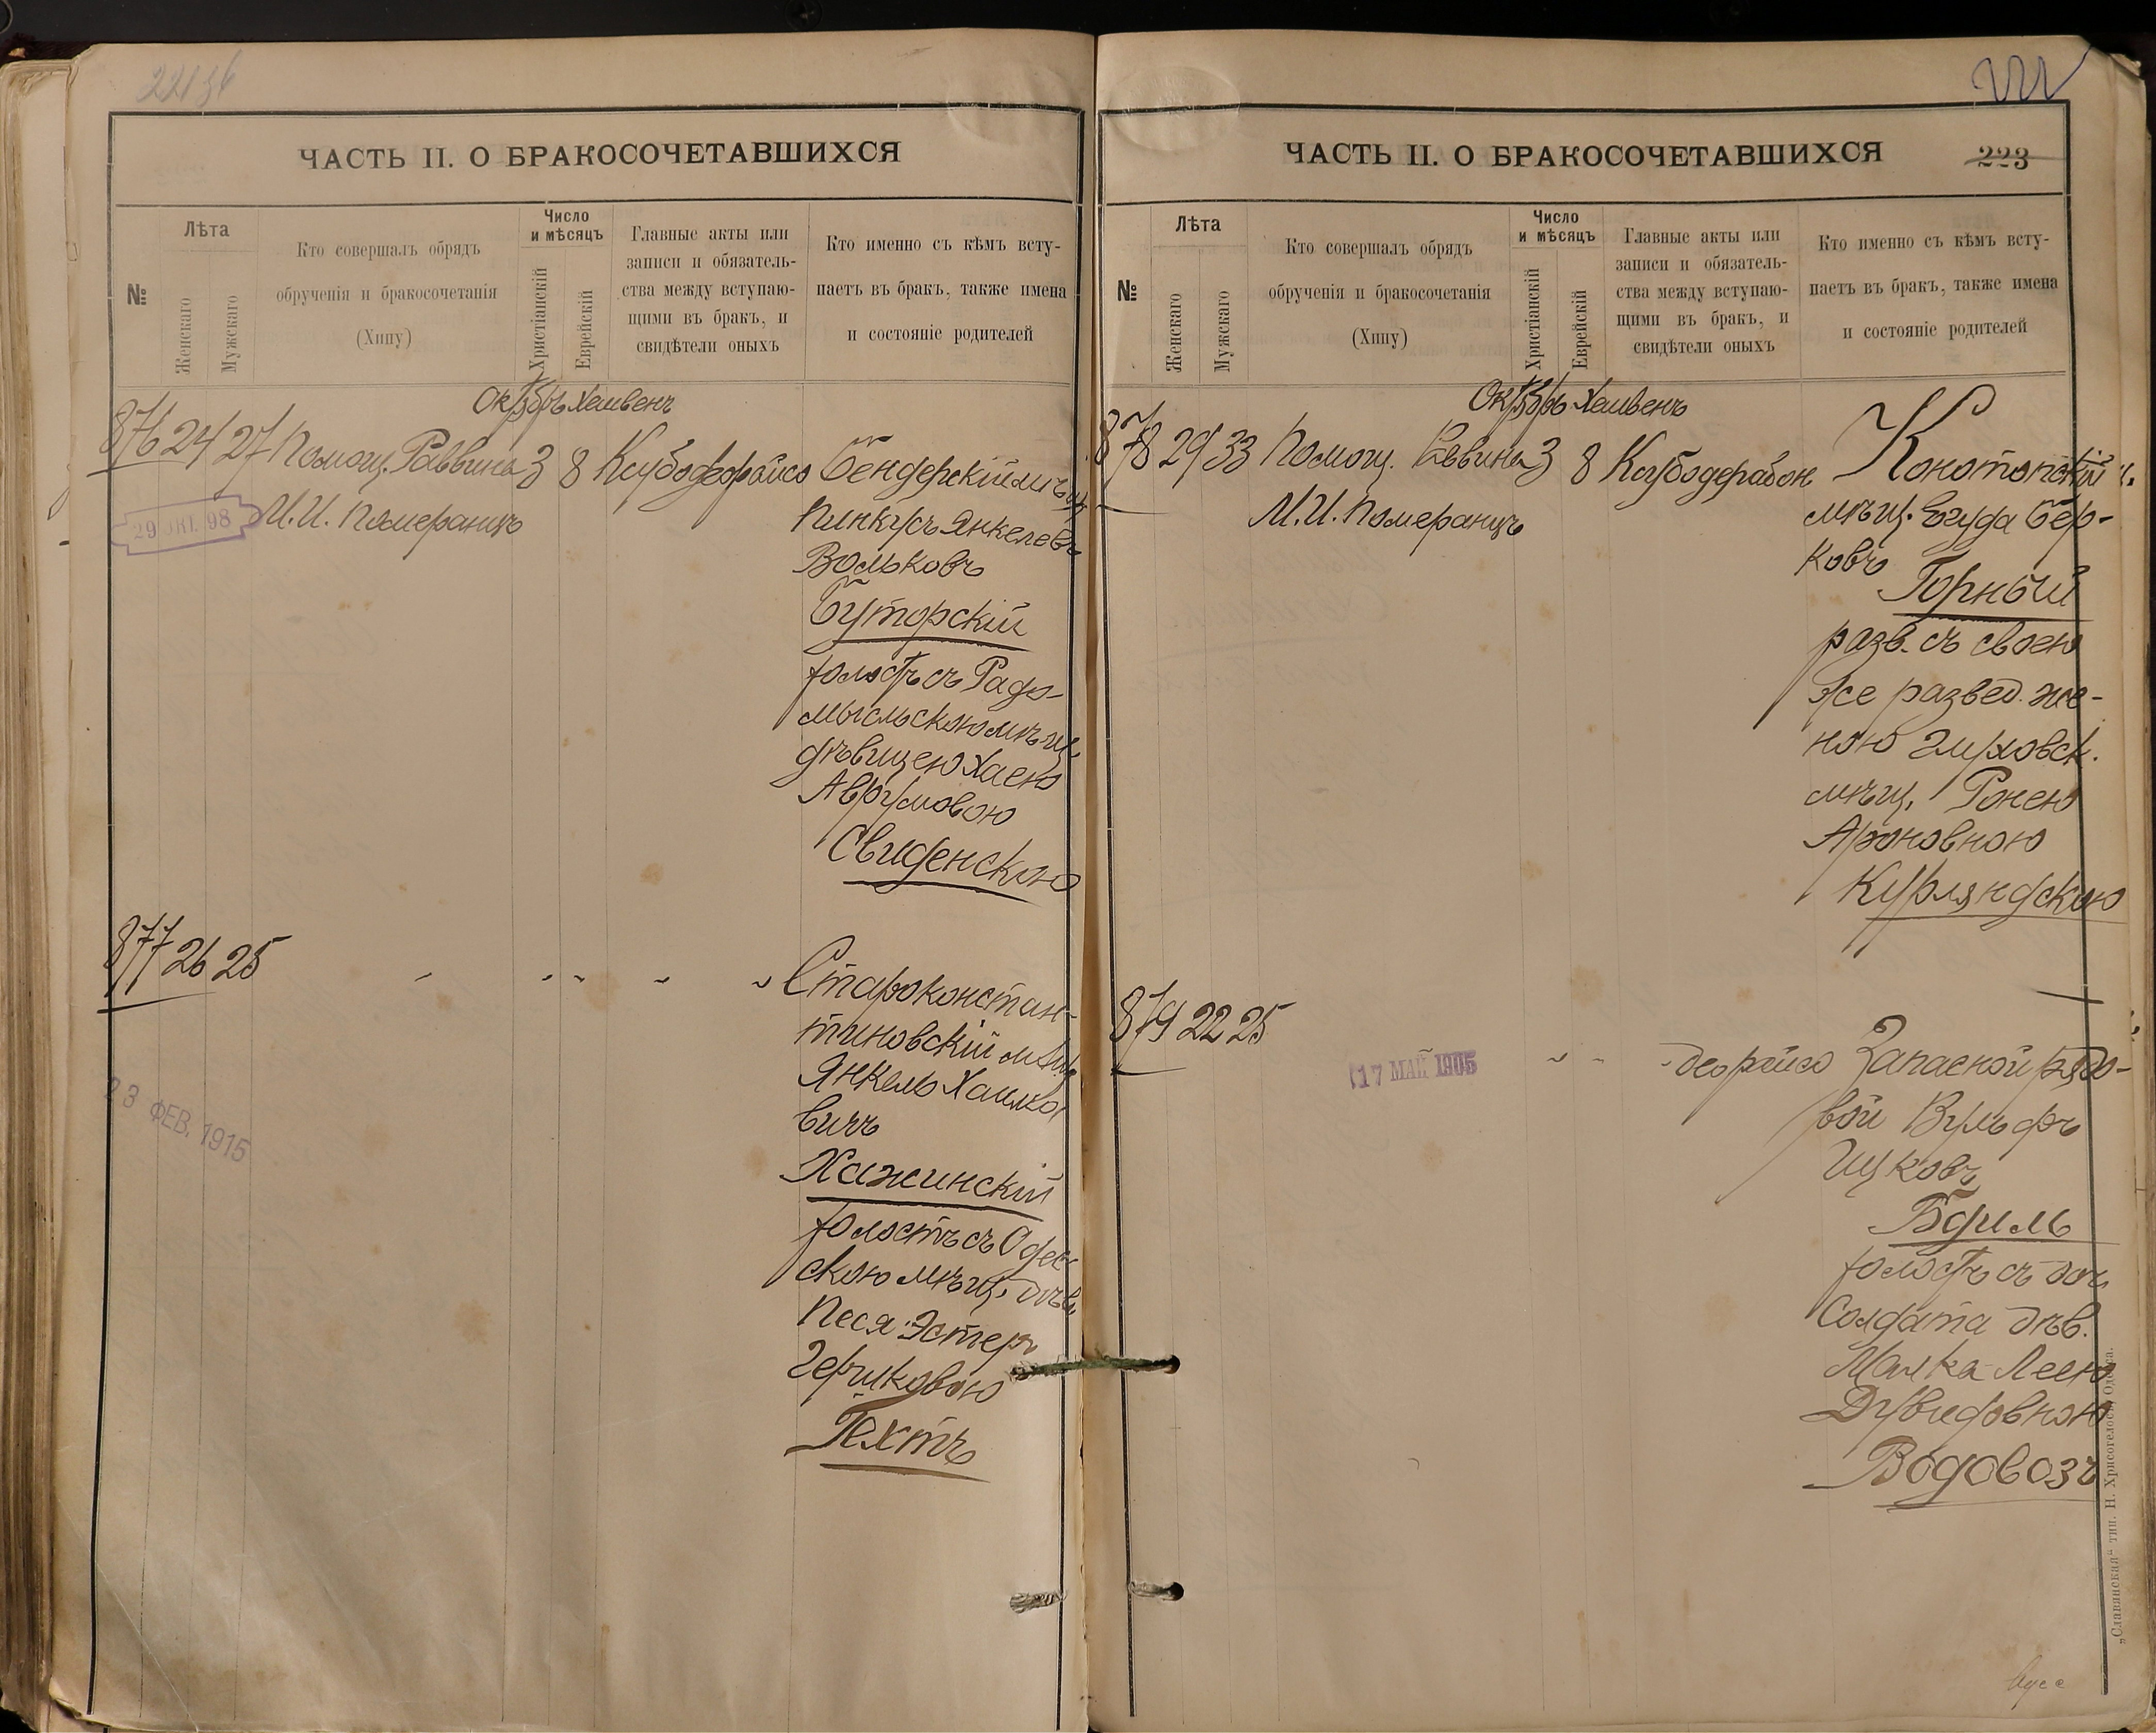 ЧАСТЬ II. О БРАКОСОЧЕТАВШИХСЯ
№
Лѣта
Женскаго
Мужскаго
Кто совершалъ обрядъ
обрученія и бракосочетанія
(Хипу)
Число
и мѣсяцъ
Христіанскій
Еврейскій
Главные акты или
записи и обязатель-
ства между вступаю-
щими въ бракъ, и
свидѣтели оныхъ
Кто именно съ кѣмъ всту-
паетъ въ бракъ, также имена
и состояніе родителей
Хешвенъ
876 24 27 Помощ. Раввина 3 8 Бендерскій мѣщ.
29 ОКТ. 98
И. И. Померанцъ
Пинкусъ Янкелевъ
Вольковъ
Буторскій
холостъ съ Радо-
мысльскою мѣщ.
дѣвицею Хаею
Аврумовою
Свиденскою
877 26 25
Староконстан-
тиновскій мѣщ.
Янкель Хаимо
вичъ
Хажинскій
холостъ съ Одес-
скою мѣщ. дѣв.
Песя-Эстеръ
Гершковою
Гехтъ
23 ФЕВ. 1915
ЧАСТЬ II. О БРАКОСОЧЕТАВШИХСЯ
223
№
Лѣта
Женскаго
Мужскаго
Кто совершалъ обрядъ
обрученія и бракосочетанія
(Хипу)
Число
и мѣсяцъ
Христіанскій
Еврейскій
Главные акты или
записи и обязатель-
ства между вступаю-
щими въ бракъ, и
свидѣтели оныхъ
Кто именно съ кѣмъ всту-
паетъ въ бракъ, также имена
и состояніе родителей
Хешвенъ
878 29 33 Помощ. Раввина 3 8 Конотопскій
М. И. Померанцъ
мѣщ. Егуда Бер-
ковъ
Горный
разв. съ своею
же развед. же-
ною Глуховск.
мѣщ. Ронею
Ароновною
Курляндскою
879 22 25
17 МАЙ 1905
Запасной рядо-
вой Вульфъ
Ицковъ
Бриль
холостъ съ доч.
солдата дѣв.
Малка-Леею
Дувидовною
Водовозъ
„Славянская“ тип. Н. Хрисогелосъ, Одесса.